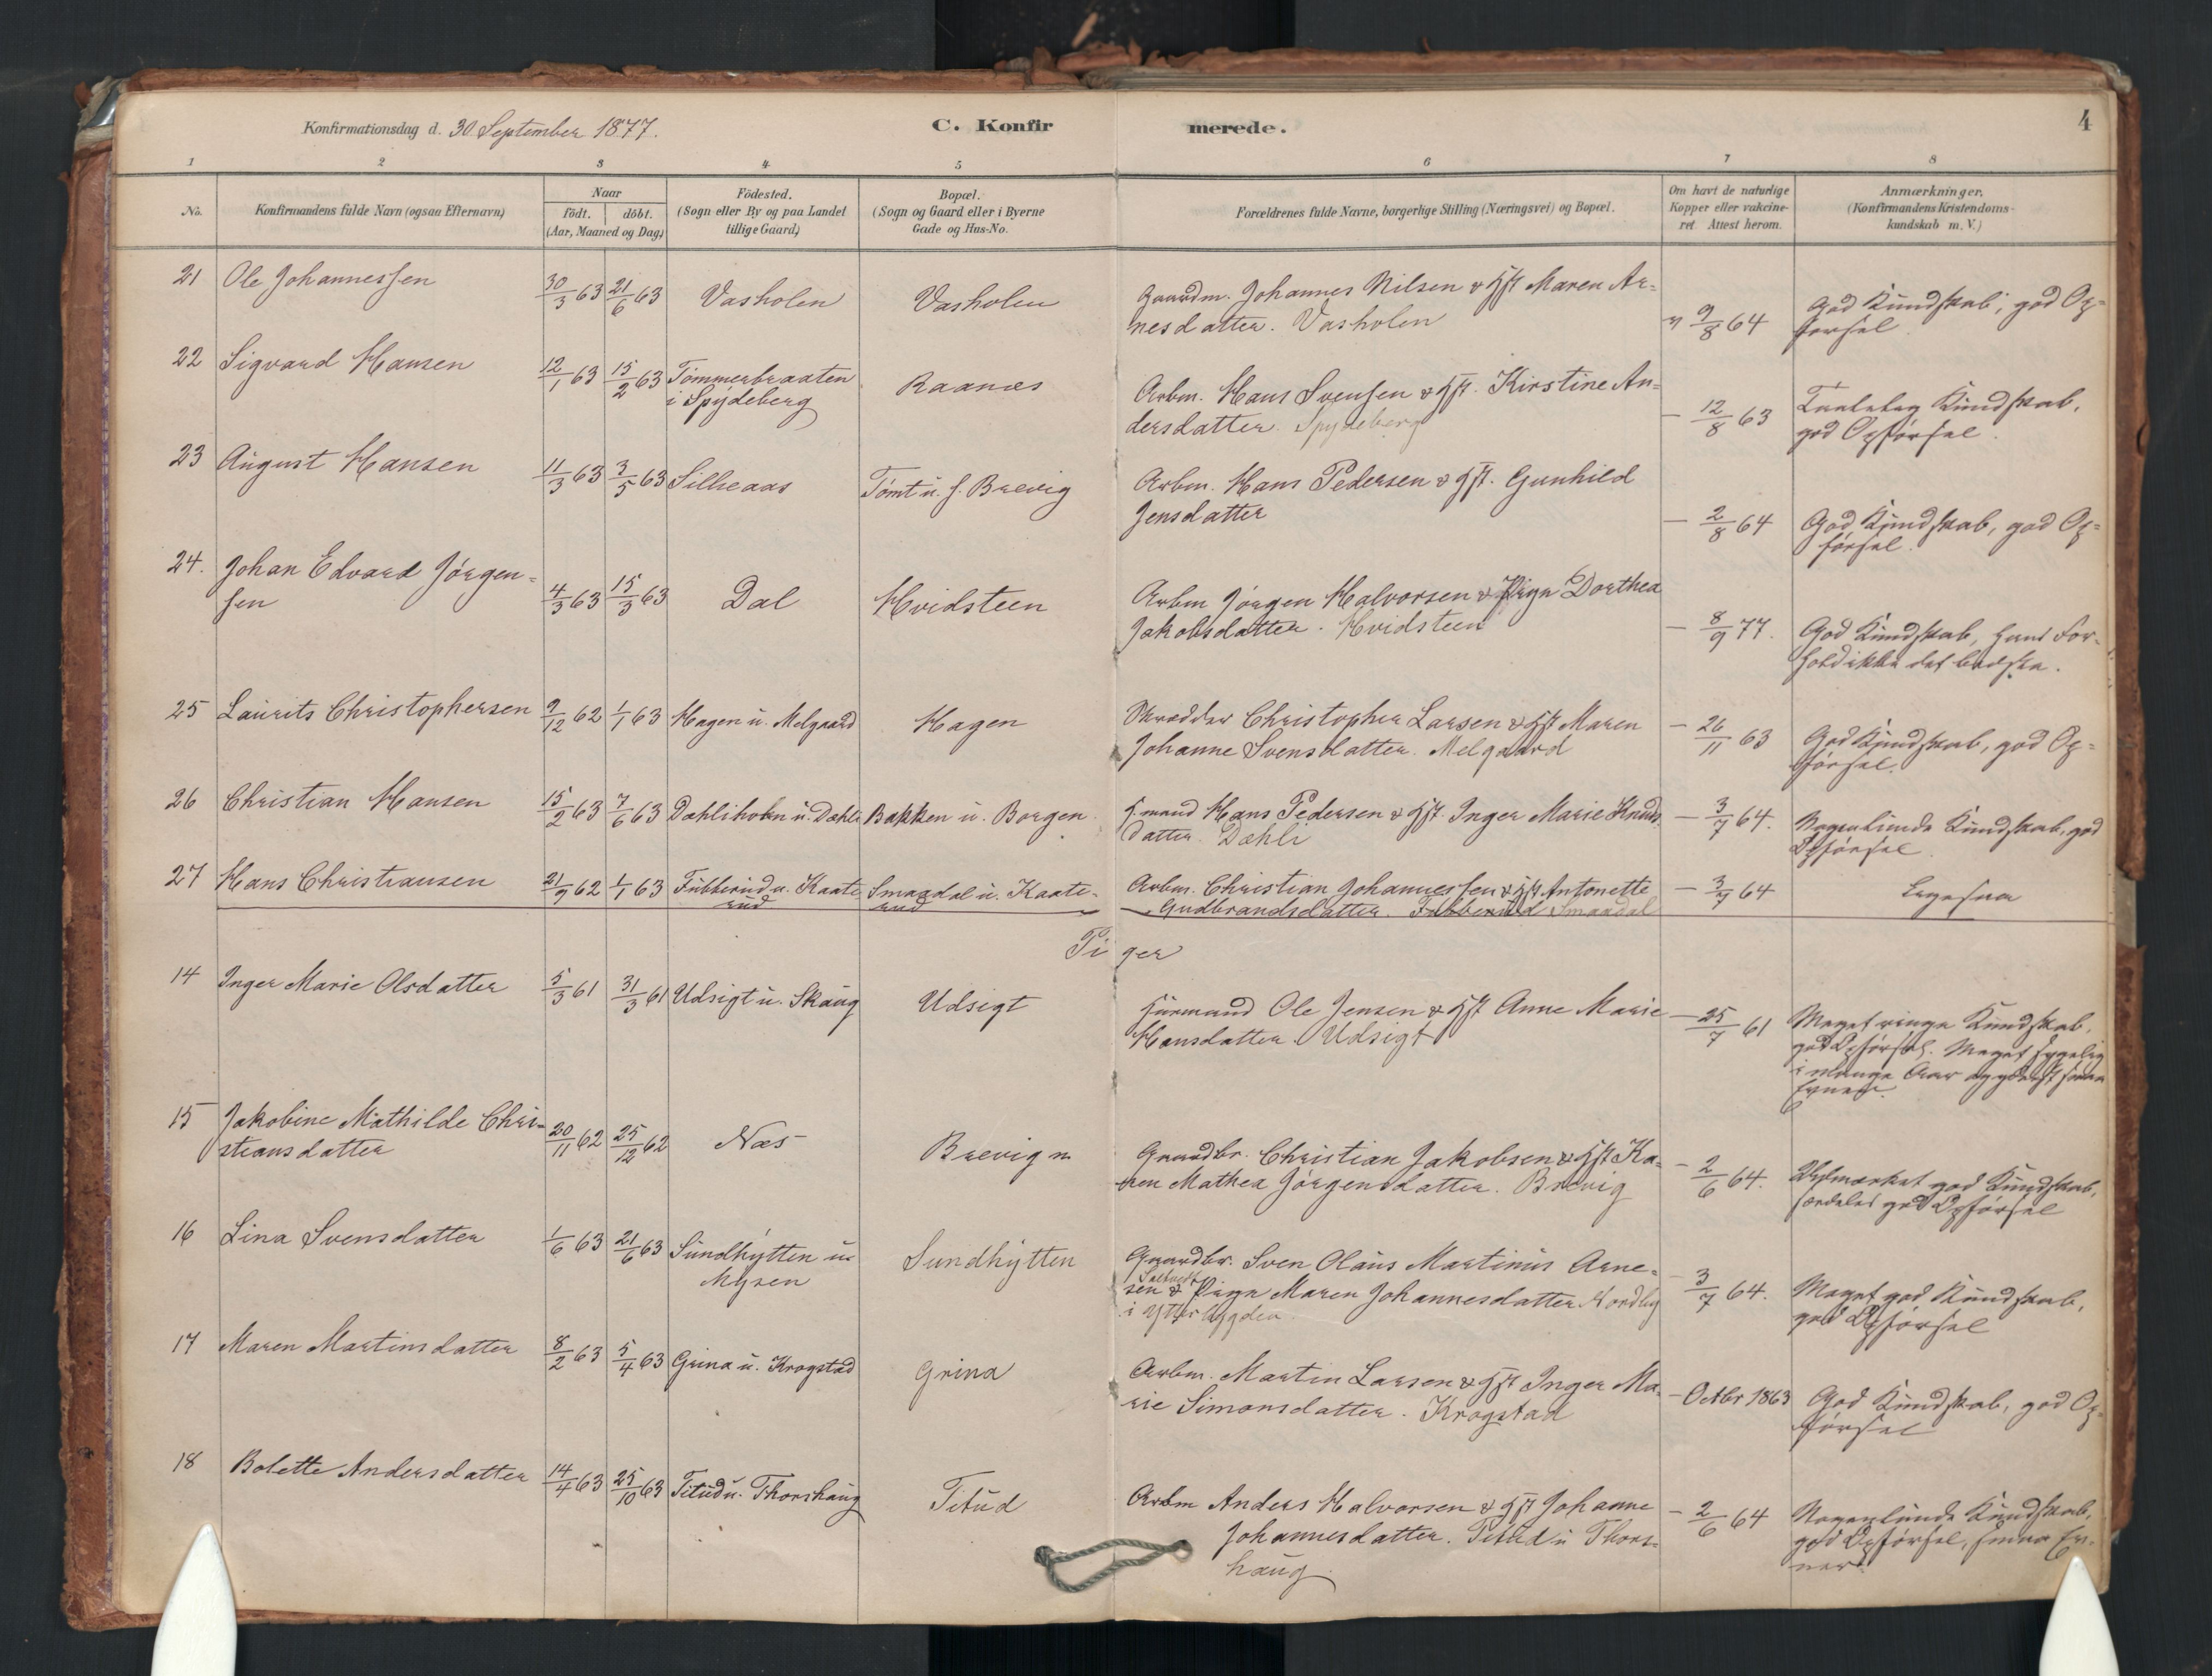 Konfirmationsdag d. 30 September 1877.
C. Konfirmerede.
4
1 2 3 4 5 6 7 8
No.
Konfirmandens fulde Navn (ogsaa Efternavn)
Naar
födt. döbt.
(Aar, Maaned og Dag)
Födested.
(Sogn eller By og paa Landet
tillige Gaard)
Bopæl.
(Sogn og Gaard eller i Byerne
Gade og Hus-No.
Forældrenes fulde Navne, borgerlige Stilling (Næringsvei) og Bopæl.
Om havt de naturlige
Kopper eller vakcine-
ret Attest herom.
Anmærkninger.
(Konfirmandens Kristendoms-
kundskab m. V.)
21 Ole Johannessen 30/3 63 21/6 63 Vasholen Vasholen
Gaardm. Johannes Nilsen & Hst Maren Ar-
nesdatter. Vasholen
9/8 64
God Kundskab; god Op-
førsel
22 Sigvard Hansen 12/1 63 15/2 63 Tømmerbraaten
i Spydeberg
Raanæs
Arbm. Hans Svensen & Hst. Kirstine An-
dersdatter. Spydeberg
— 12/8 63
Taalelig Kundskab,
god Opførsel.
23 August Hansen 11/3 63 3/5 63 Silheaas
Tømt u. f. Brevig
Arbm. Hans Pedersen & Hst. Gunhild
Jensdatter
— 2/8 64
God Kundskab, god Op-
førsel.
24. Johan Edvard Jørgen-
sen
4/3 63 15/3 63 Dal Hvidsteen
Arbm Jørgen Halvorsen & Pige Dorthea
Jakobsdatter. Hvidsteen
— 8/9 77.
God Kundskab, hans For-
hold ikke det bedste.
25 Laurits Christophersen 9/12 62 1/1 63 Hagen u. Melgaard Hagen
Skrædder Christopher Larsen & Hst Maren
Johanne Svensdatter. Melgaard
— 26/11 63
God Kundskab, god Op-
førsel.
26 Christian Hansen 15/2 63 7/6 63 Dæhliholen u. Dæhli Bakken u. Borgen.
H.mand Hans Pedersen & Hst. Inger Marie Knuds-
datter. Dæhli
— 3/7 64.
Nogenlunde Kundskab, god
Opførsel.
27 Hans Christiansen 21/9 62 1/1 63 Fubberud u. Kaate-
rud
Smaadal u. Kaate-
rud
Arbm. Christian Johannessen & Hst Antonette
Gudbrandsdatter. Fubberud Smaadal
— 3/7 64
Ligesaa
Piger
14 Inger Marie Olsdatter 5/3 61 31/3 61 Udsigt u. Skaug Udsigt
Husmand Ole Jensen & Hst Anne Marie
Hansdatter. Udsigt
— 25/7 61
Meget ringe Kundskab,
god Opførsel. Meget sygelig
i mange Aar og yderst smaa
Evner.
15 Jakobine Mathilde Chri-
stiansdatter
20/11 62 25/12 62 Næs Brevig n
Gaardbr. Christian Jakobsen & Hst Ka-
ren Mathea Jørgensdatter. Brevig
— 2/6 64.
Udmærket god Kundskab,
særdeles god Opførsel
16 Lina Svensdatter 1/6 63 21/6 63 Sundhytten u
Mysen
Sundhytten
Gaardbr. Sven Olaus Martinius Arne-
sen & Pige Maren Johannesdatter Nordby
i Ytter
— 3/7 64.
Meget god Kundskab,
god Opførsel
17 Maren Martinsdatter 8/2 63 5/4 63 Grina u. Krogstad Grina
Arbm. Martin Larsen & Hst Inger Ma-
rie Simonsdatter. Krogstad
— Octbr 1863
God Kundskab, god Op-
førsel
18 Bolette Andersdatter 14/4 63 25/10 63 Titud u. Thorshaug Titud
Arbm Anders Halvorsen & Hst Johanne
Johannesdatter. Titud u Thors-
haug.
— 2/6 64
Nogenlunde Kundskab,
god Opførsel, smaa Ev-
ner.